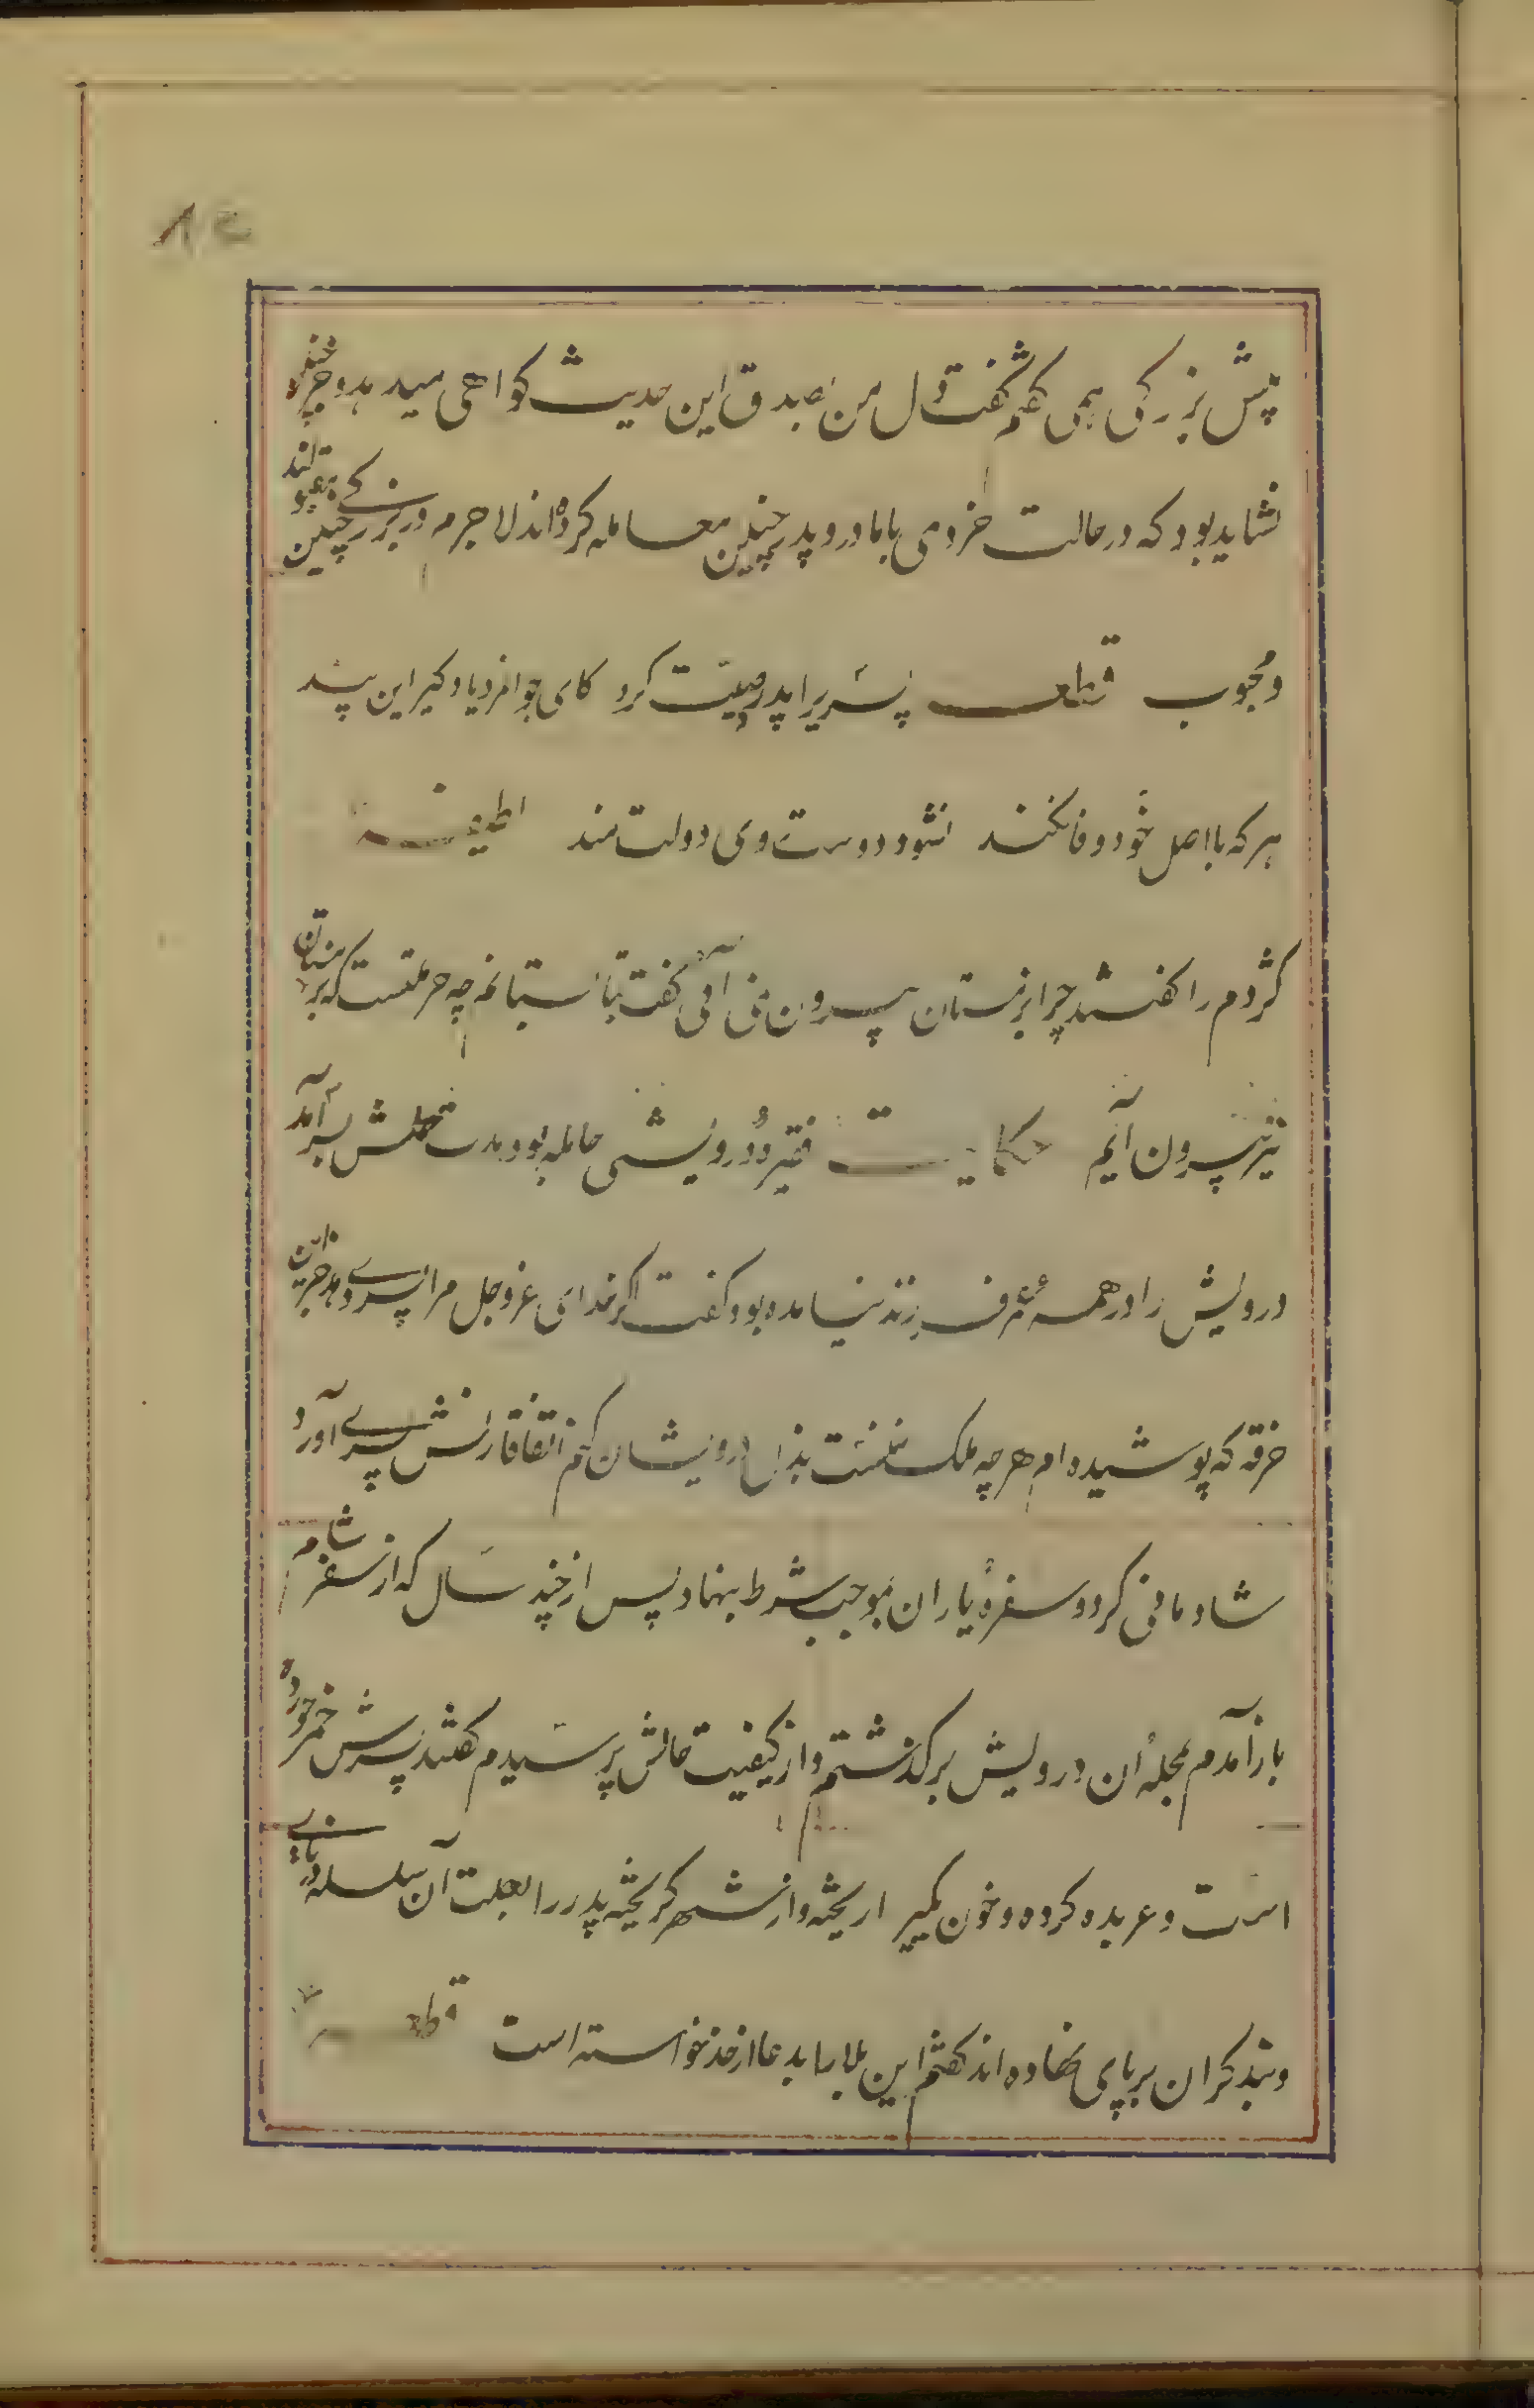 پیش بزرگی همی گفتم گفت دل من بصدق این حدیث کواهی میدهد و جز چنین
نشاید بود که در حالت خردی با مادر و پدر چنین معامله کرده‌اند لاجرم در بزرگی چنین مقبولند
و محبوب قطعه پسریرا پدر وصیت کرد کای جوانمرد یاد کیر این پند
هر که با اصل خود وفا نکند نشود دوست وی دولت مند لطیفه
کژدم را کفتند چرا بزمستان بیرون نمی آئی کفت بتابستانم چه حرمتست که بزمستان
نیز بیرون آیم حکایت فقیره درویشی حامله بود مدت حملش بسر آمد
درویش را در همه عمر فرزند نیامده بود کفت اکر خدای عزوجل مرا پسری دهد جز این
خرقه که پوشیده ام هر چه ملک منست بذل درویشان کنم اتفاقا زنش پسری آورد
شادمانی کرد و سفرهٔ یاران بموجب شرط بنهاد پس از چند سال که از سفر شام
باز آمدم بمحله آن درویش برکذشتم و از کیفیت حالش پرسیدم کفتند پسرش خمر خورده
است و عربده کرده و خون کسی ریخته و از شهر کریخته پدر را بعلت آن سلسله در نای
و بند کران بر پای نهاده اند کفتم این بلا را بدعا از خدا خواسته است قطعه